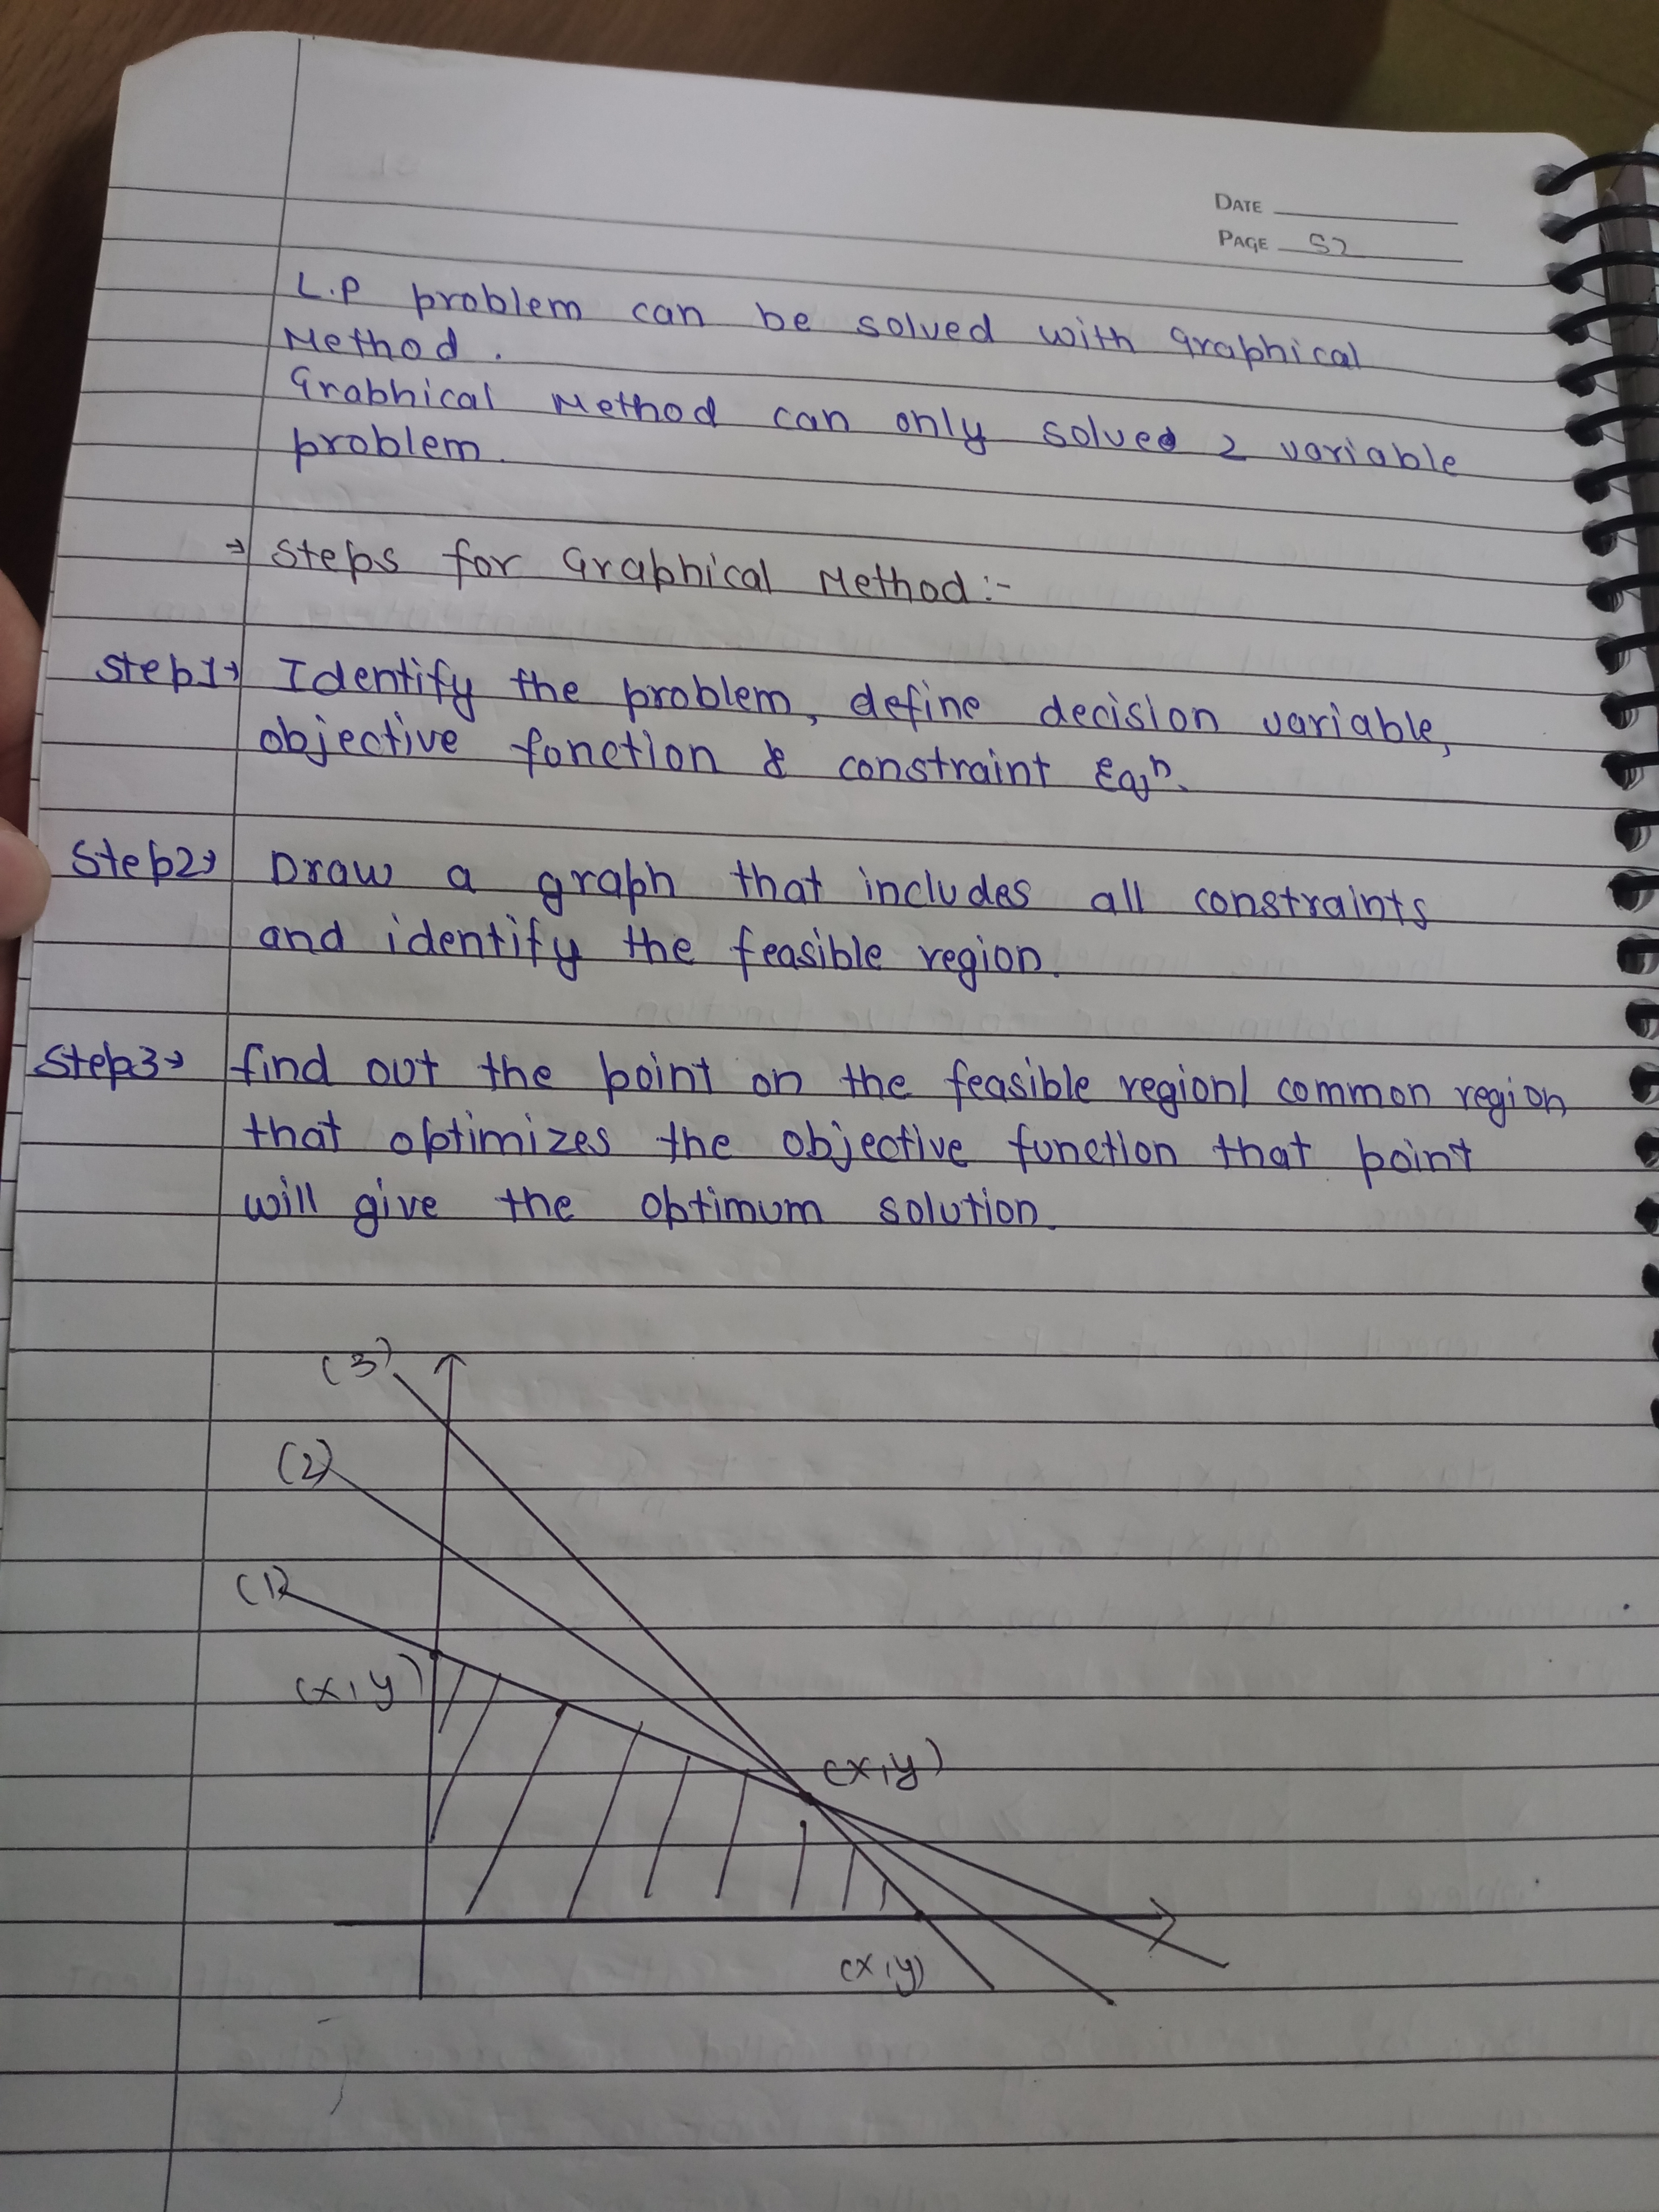 DATE
PAGE 52
L.P problem can be solved with Graphical
Method.
Grabhical Method can only solved 2 variable
problem.
→ Steps for Graphical Method:-
Step1→ Identify the problem, define decision variable,
objective fonction & constraint Eqⁿ.
Step2→ Draw a graph that includes all constraints
and identify the feasible region.
Step3→ find out the point on the feasible region/ common region
that optimizes the objective function that point
will give the optimum solution.
(3)
(2)
(1)
(x,y)
(x,y)
(x,y)